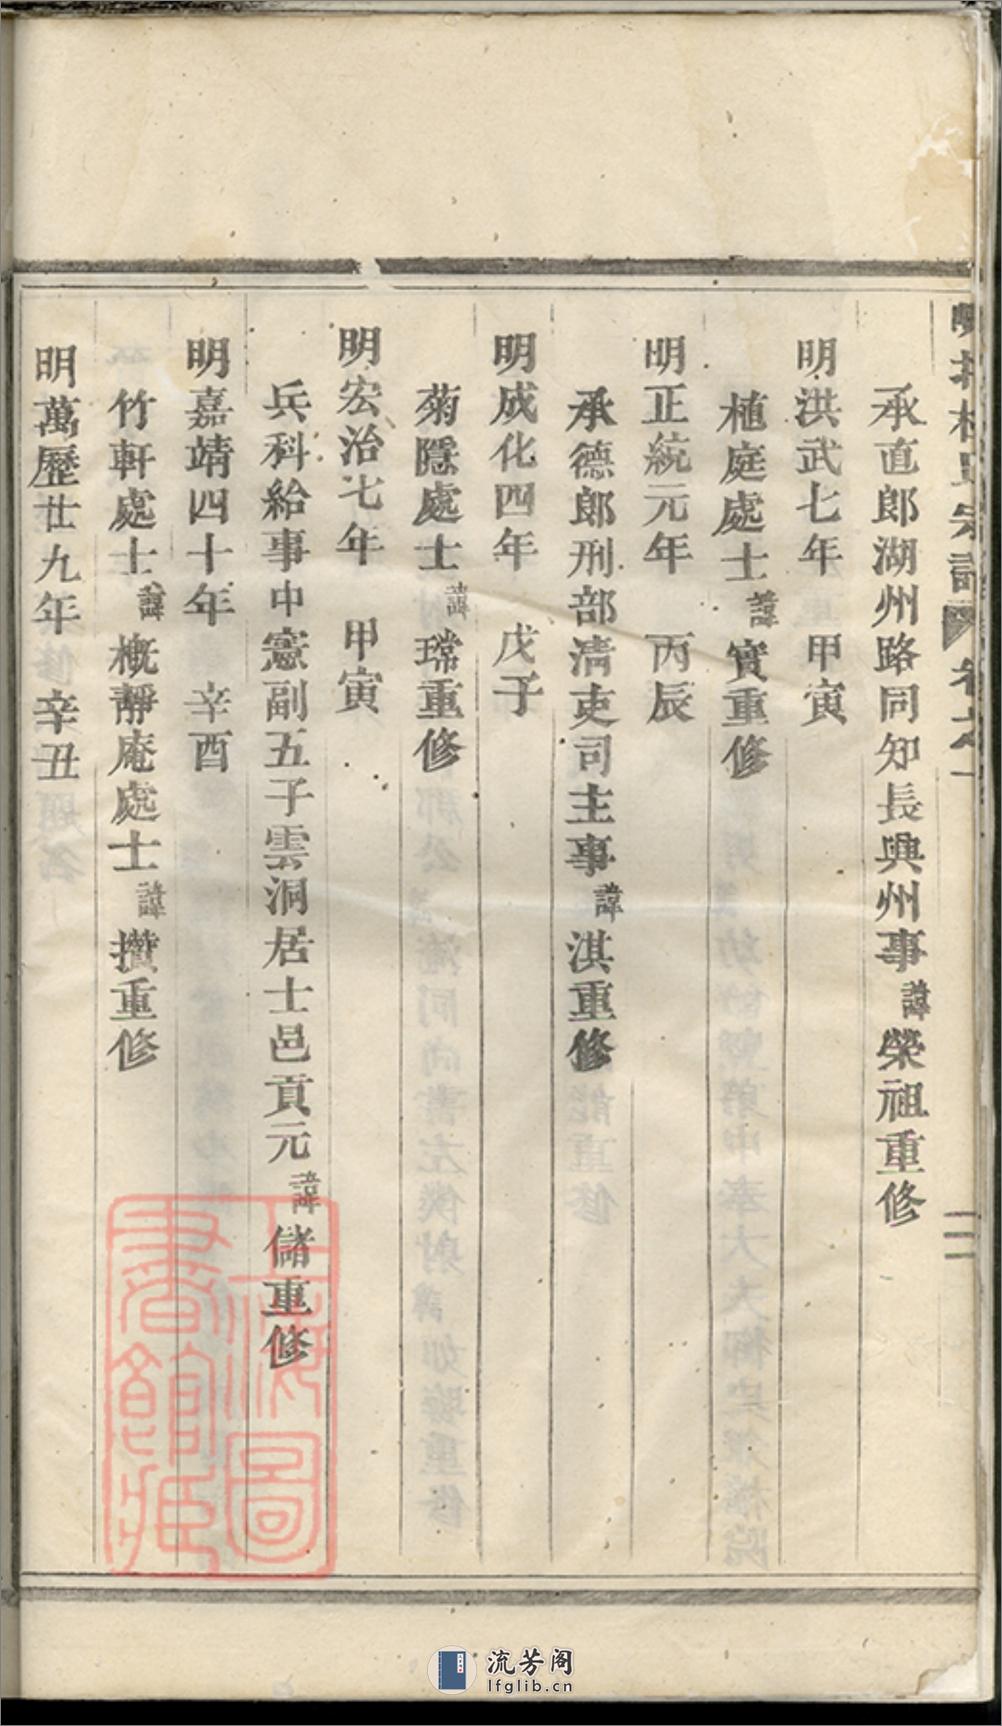 宗譜 卷之一
承直郎湖州路同知長興州事諱榮祖重修
明洪武七年 甲寅
植庭處士諱實重修
明正統元年 丙辰
承德郎刑部清吏司主事諱淇重修
明成化四年 戊子
菊隱處士諱瑺重修
明宏治七年 甲寅
兵科給事中憲副五子雲洞居士邑貢元諱儲重修
明嘉靖四十年 辛酉
竹軒處士諱概靜庵處士諱攢重修
明萬歷廿九年辛丑
上海圖書館藏
流芳阁
lfglib.cn